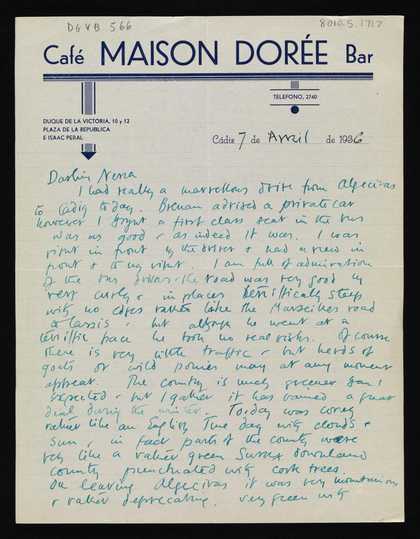 DGVB 566
8010.5.1717
Café MAISON DORÉE Bar
DUQUE DE LA VICTORIA, 10 y 12
PLAZA DE LA REPUBLICA
E ISAAC PERAL
TELEFONO, 2740
Cádiz 7 de Avril de 1936
Darling Nessa
I had really a marvellous drive from Algeciras
to Cadiz today. Brenan advised a private car
however I thought a first class seat in the bus
was as good & as indeed it was. I was
right in front by the driver & had a view in
front & to my right. I am full of admiration
of the bus driver. the road was very good
very curly & in places terrifically steep
with no edges rather like the Marseilles road
to Cassis, but altho he went at a
terrific pace he took no real risks. Of course
there is very little traffic & but herds of
goats or wild ponies may at any moment
appear. The country is much greener than I
expected & but I gather it has rained a great
deal during the winter. Today was
rather like an English June day with clouds &
sun, in fact parts of the country were
very like a rather green Sussex downland
country punctuated with cork trees.
On leaving Algeciras it was very mountainous
& rather very green with